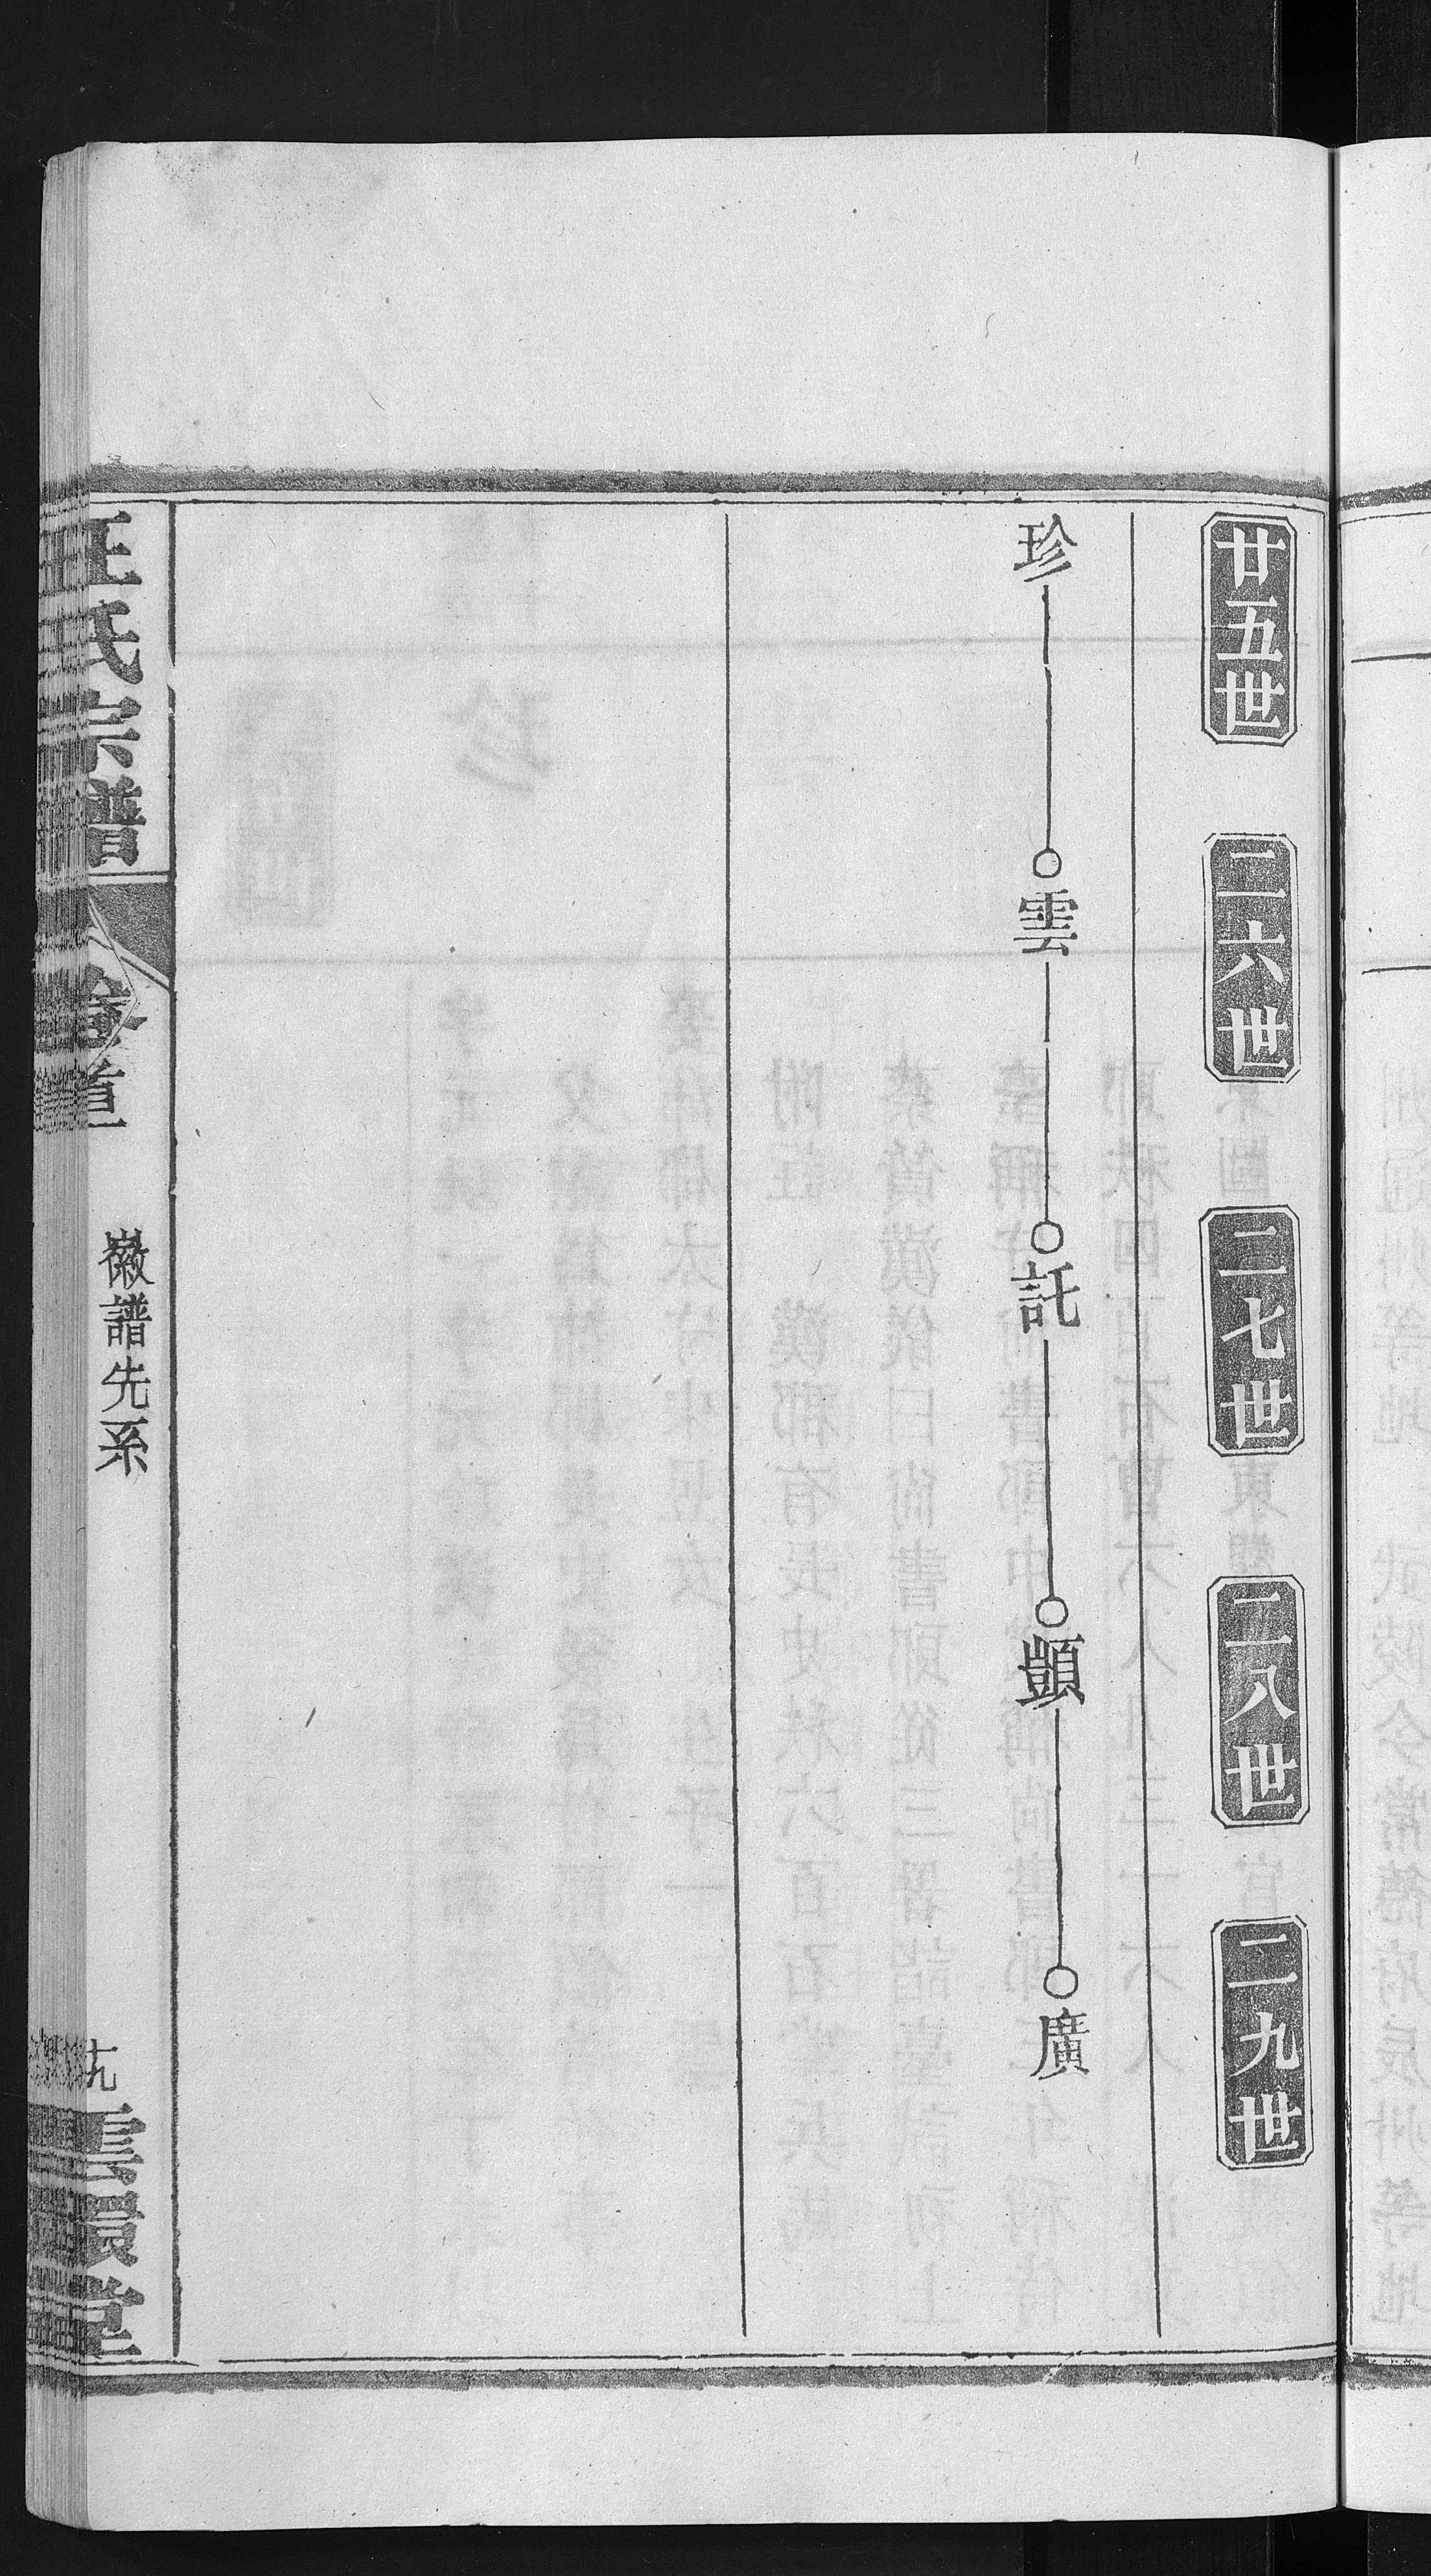 廿五世 二六世 二七世 二八世 二九世
珍 雲 託 顗 廣
汪氏宗譜 卷首一 徽譜先系 十九 雲環堂